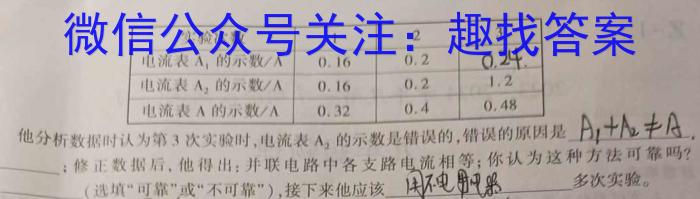 微信公众号关注：趣找答案
实验次数 2 3
电流表 A₁ 的示数/A 0.16 0.2 0.24
电流表 A₂ 的示数/A 0.16 0.2 1.2
电流表 A 的示数/A 0.32 0.4 0.48
他分析数据时认为第 3 次实验时,电流表 A₂ 的示数是错误的,错误的原因是 A₁+A₂≠A
;修正数据后,他得出:并联电路中各支路电流相等;你认为这种方法可靠吗?
(选填“可靠”或“不可靠”),接下来他应该 用不电用电器 多次实验。